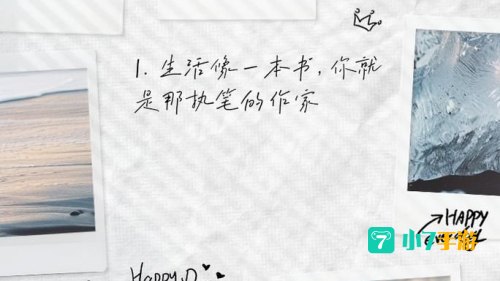 1. 生活像一本书，你就
是那执笔的作家
HAPPY
小7手游
7
HAPPY